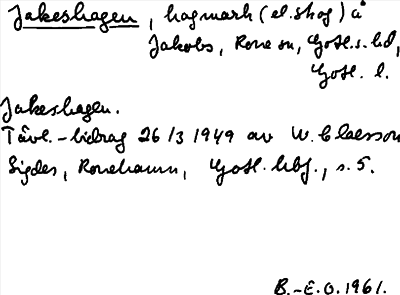 Jakeshagen, hagmark (el. skog) å
Jakobs, Rone sn, Gotl. s. hd,
Gotl. l.
Jakeshagen.
Tävl.-bidrag 26/3 1949 av W. Claesson
Sigdes, Ronehamn, Gotl. hbf., s. 5.
B.-E. O. 1961.